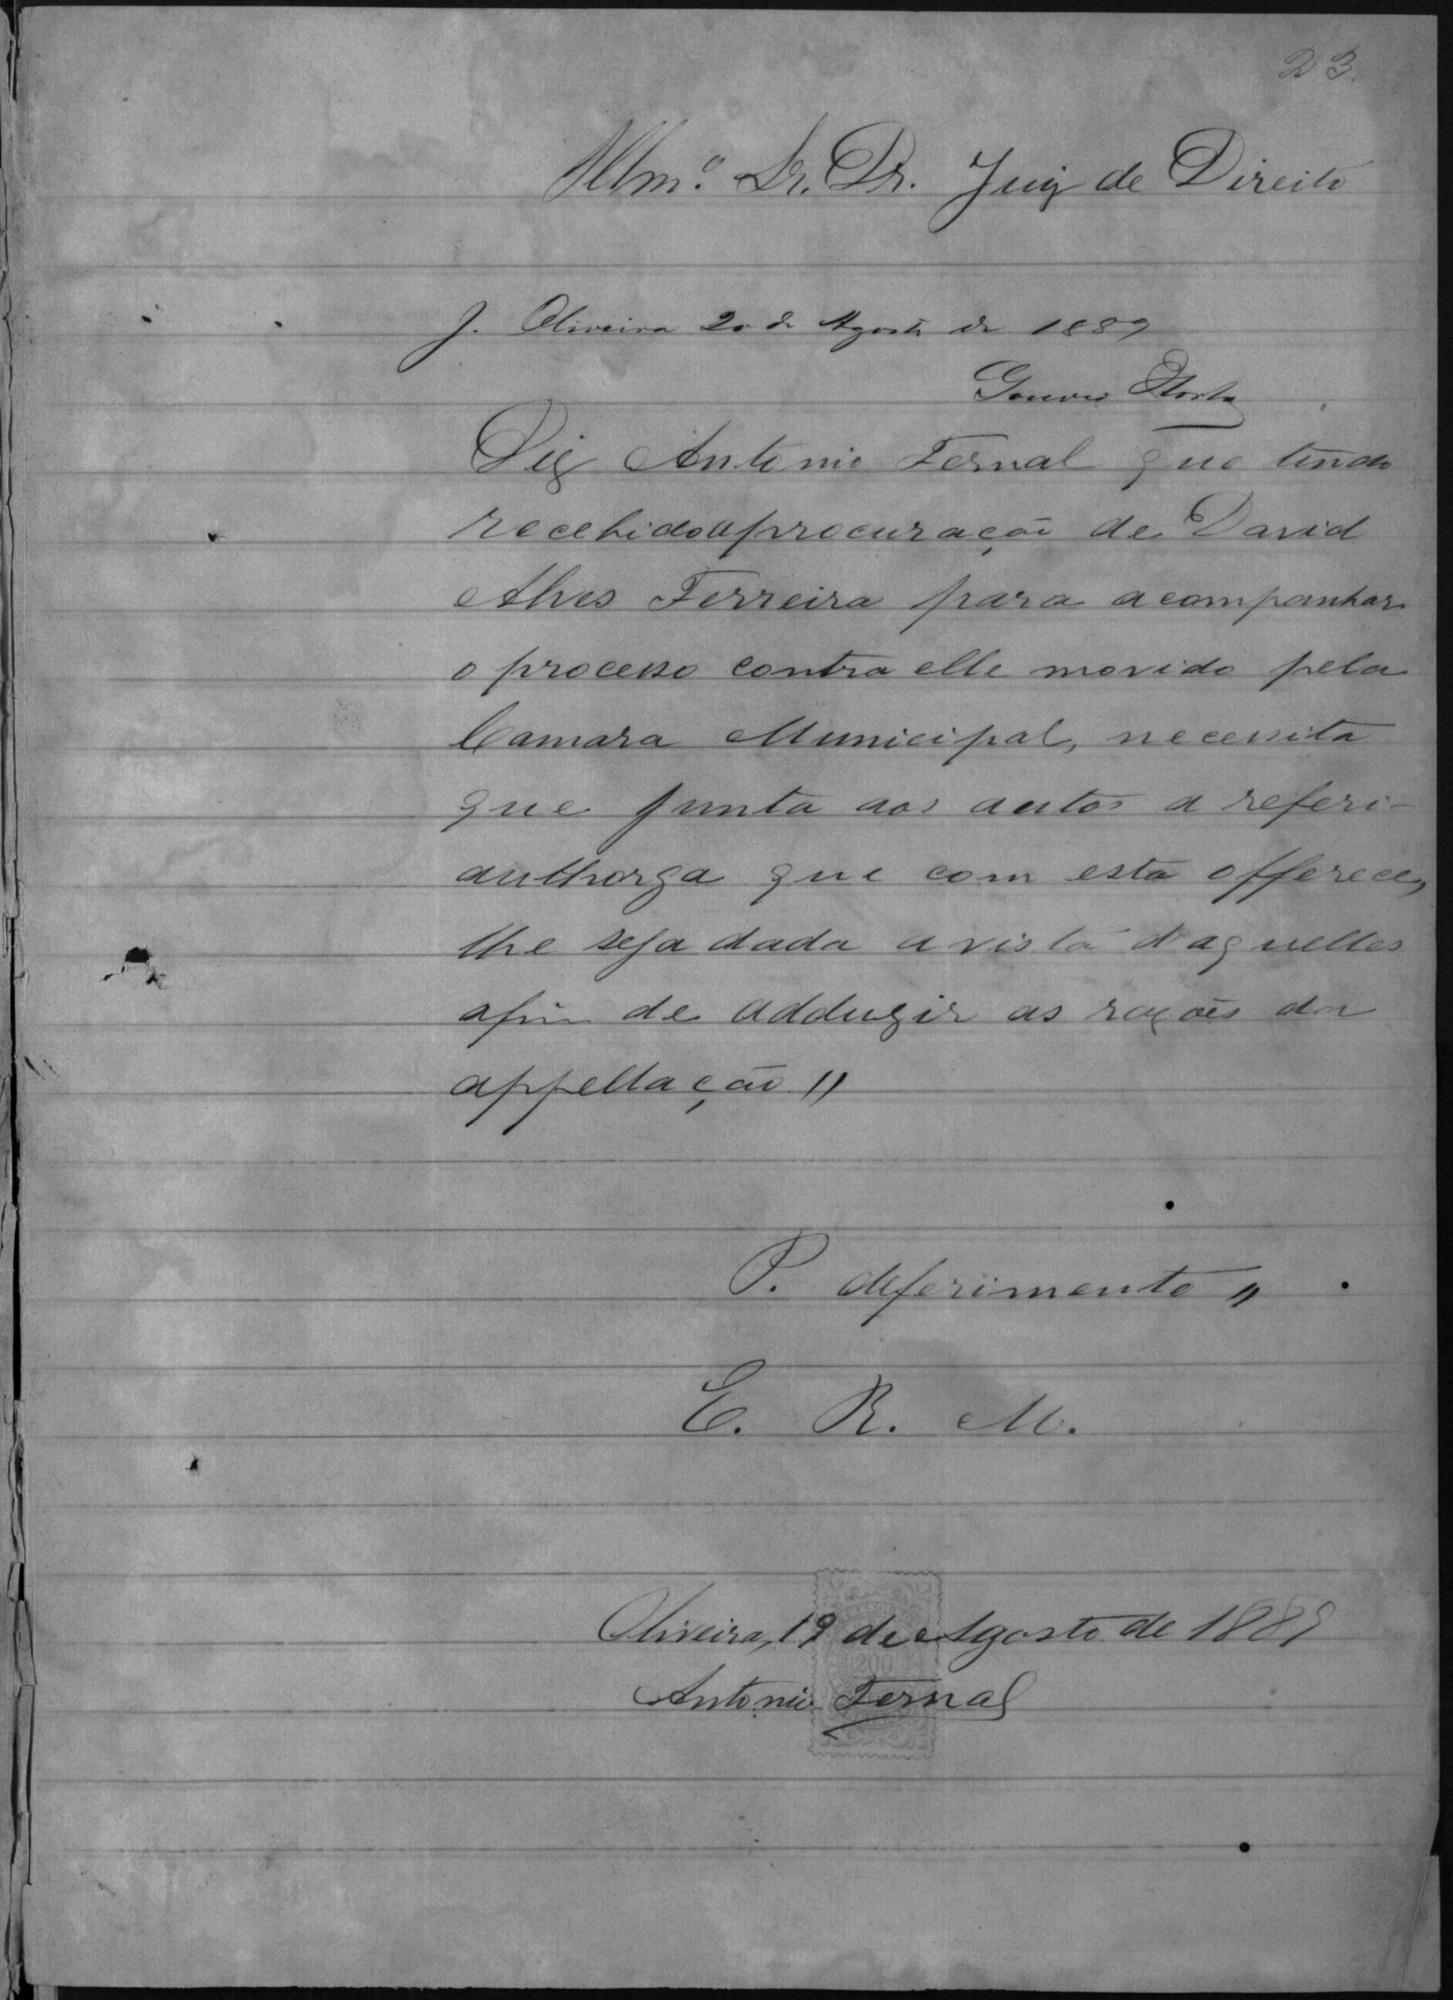 23.
Illmº. Sr. Dr. Juiz de Direito
J. Oliveira 20 de Agosto de 1889
Gouvea Horta
Diz Antonio Fernal que tendo
recebido a procuração de David
Alves Ferreira para acompanhar
o processo contra elle movido pela
Camara Municipal, necessita
que junta aos autos a referi-
authorga que com esta offerece,
lhe seja dada a vista d'aquelles
afim de adduzir as razões da
appellação "
P. deferimento "
E. R. M.
Oliveira, 19 de Agosto de 1889
200
Antonio Fernal